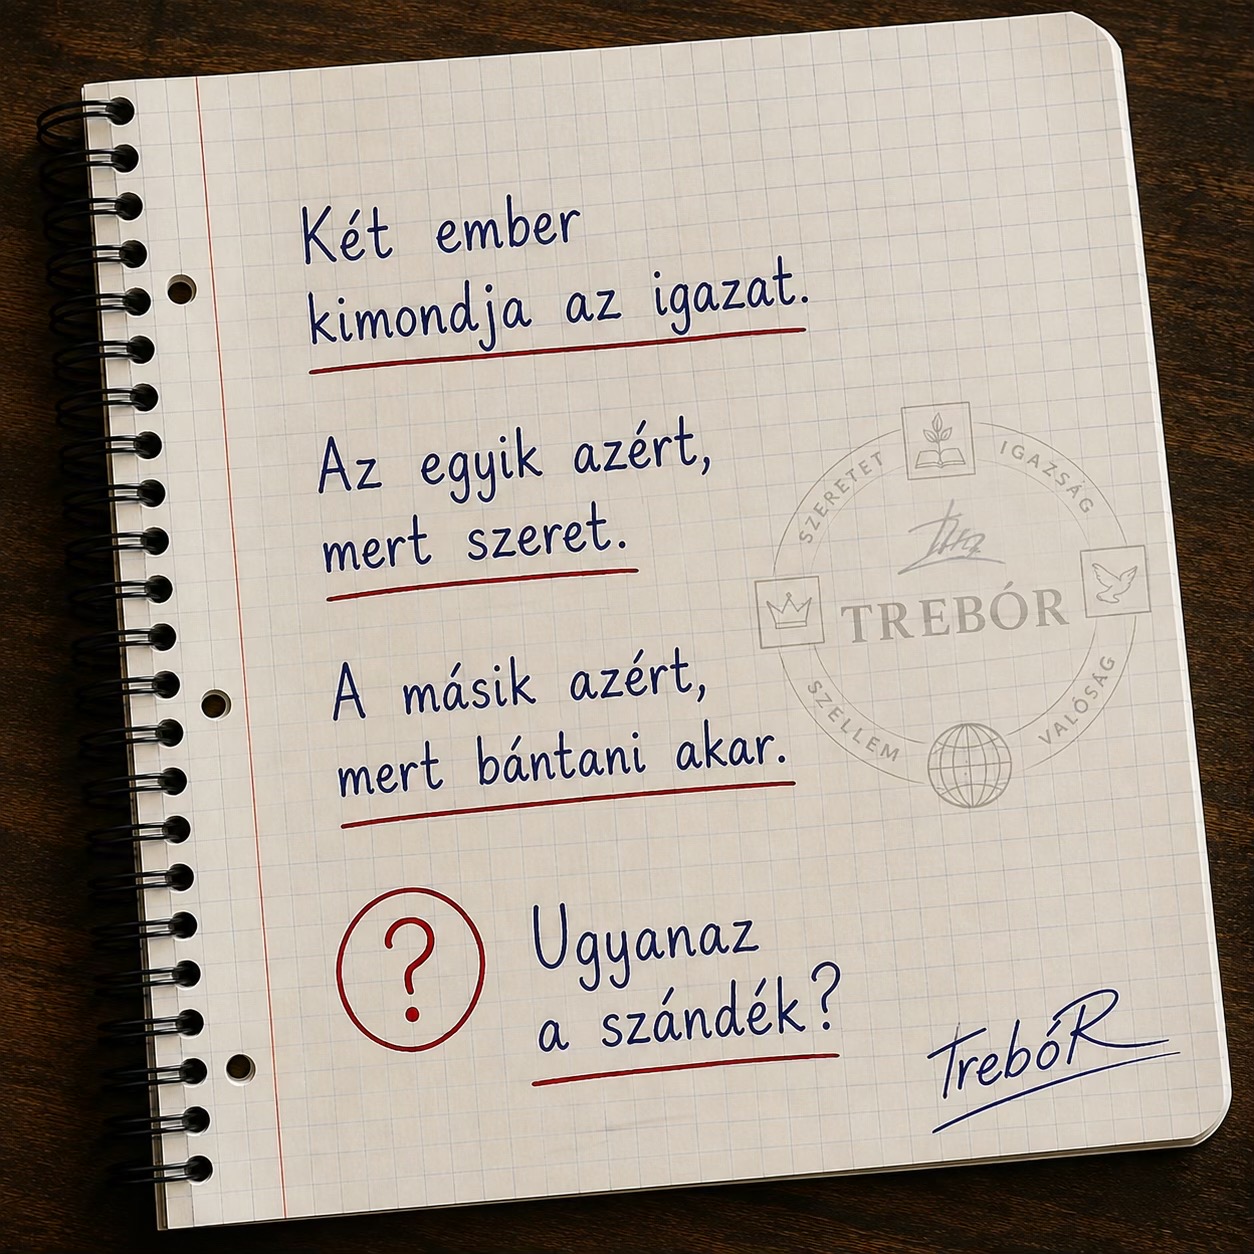 Két ember
kimondja az igazat.
Az egyik azért,
mert szeret.
A másik azért,
mert bántani akar.
?
Ugyanaz
a szándék?
SZERETET
IGAZSÁG
TREBÓR
SZELLEM
VALÓSÁG
TrebóR